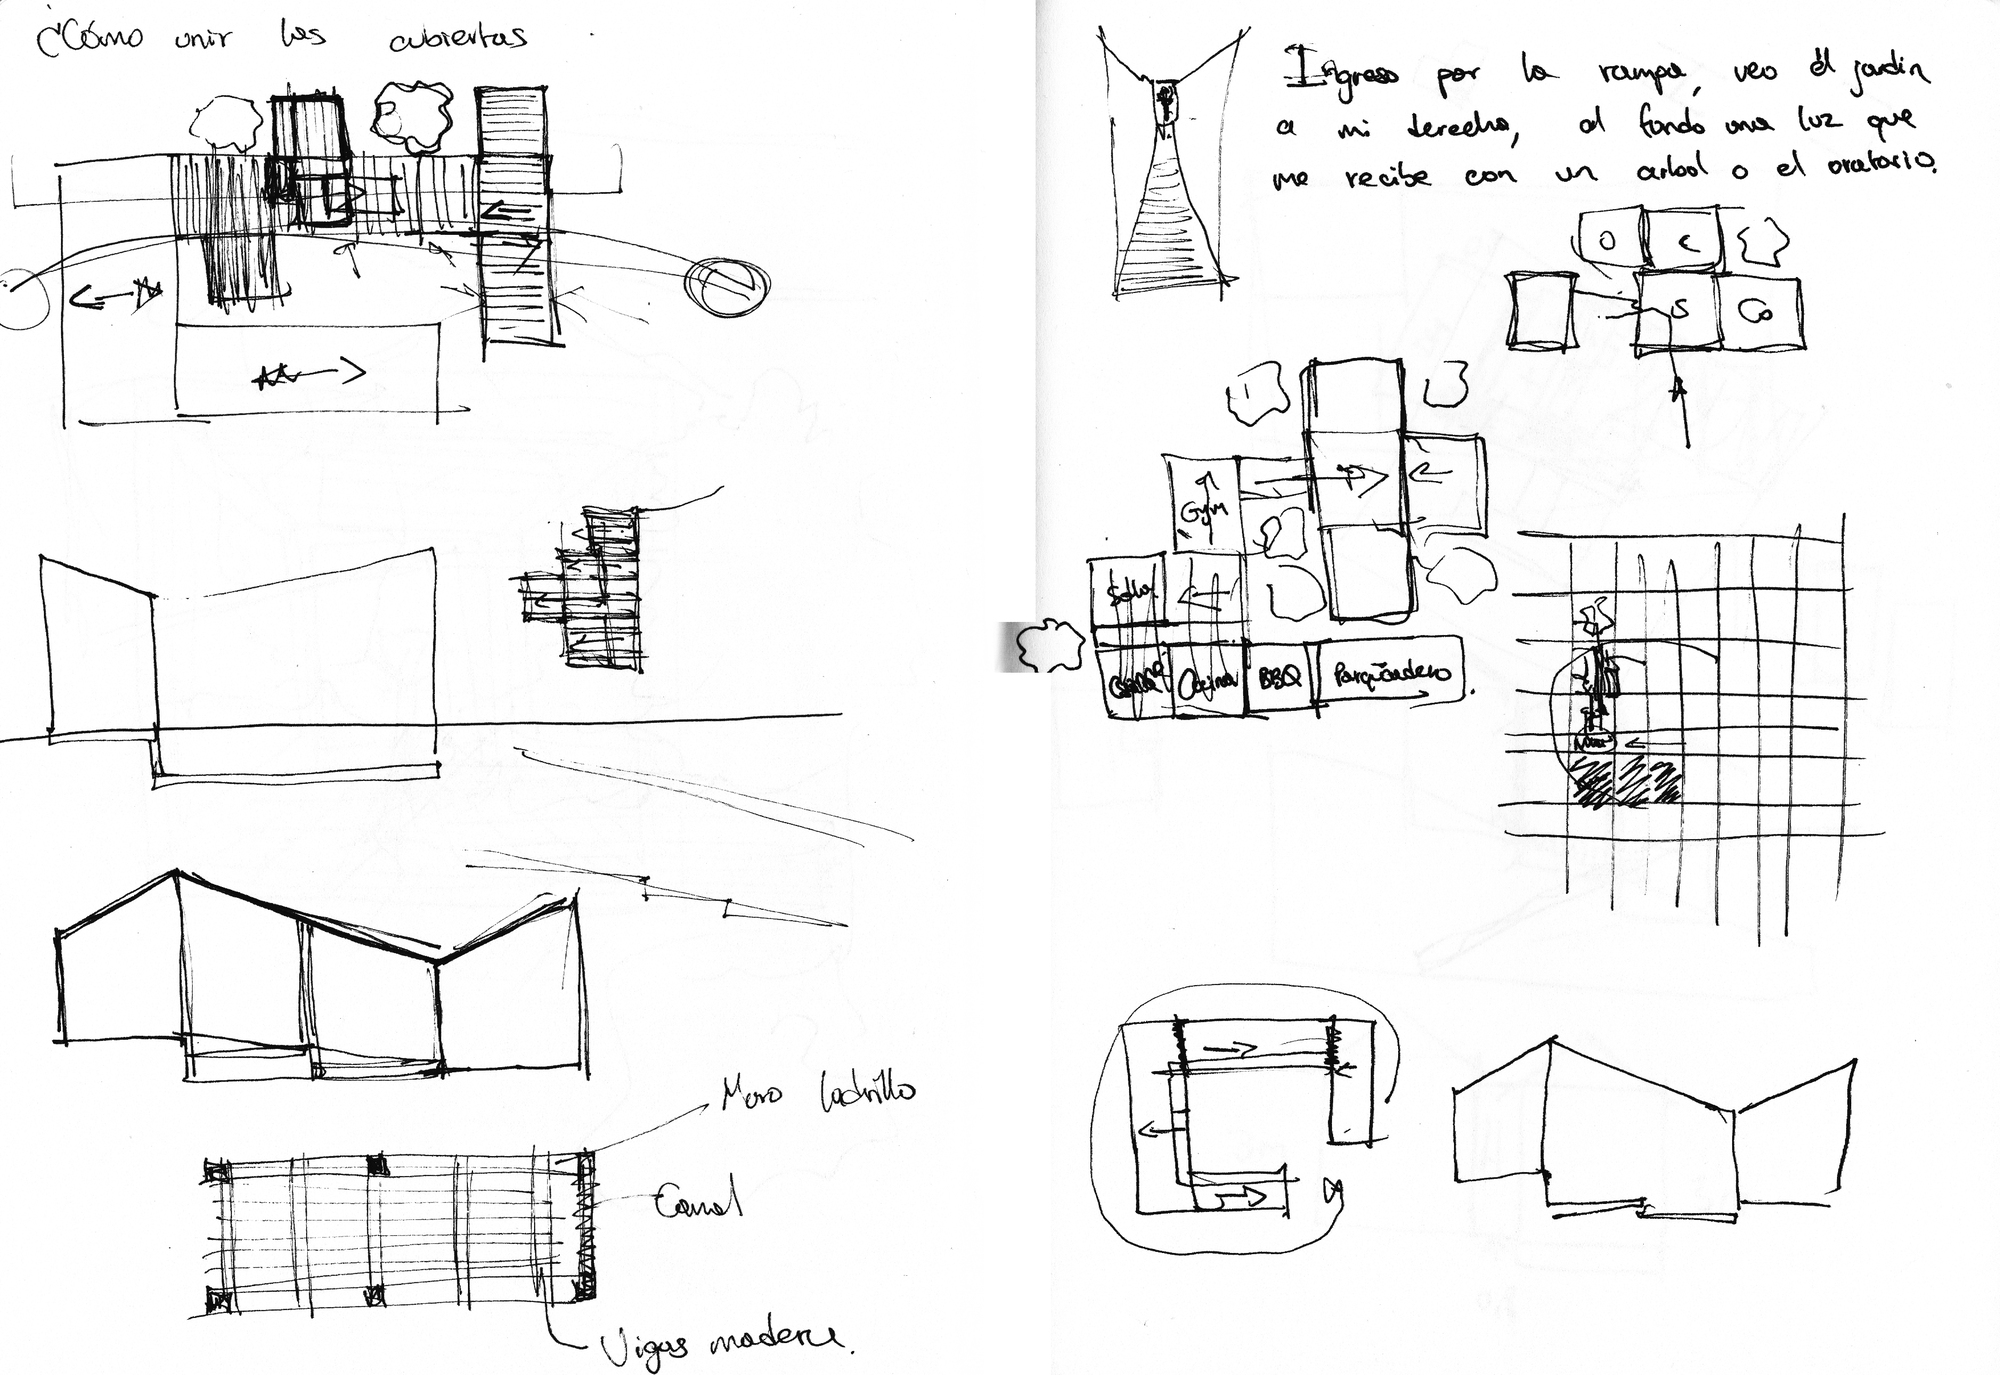 ¿Cómo unir las cubiertas
Muro ladrillo
Canal
Vigas madera.
Ingreso por la rampa, veo el jardin
a mi derecha, al fondo una luz que
me recibe con un arbol o el oratorio.
O C
S Co
Gym
Sala
Cocina BBQ Parqueadero